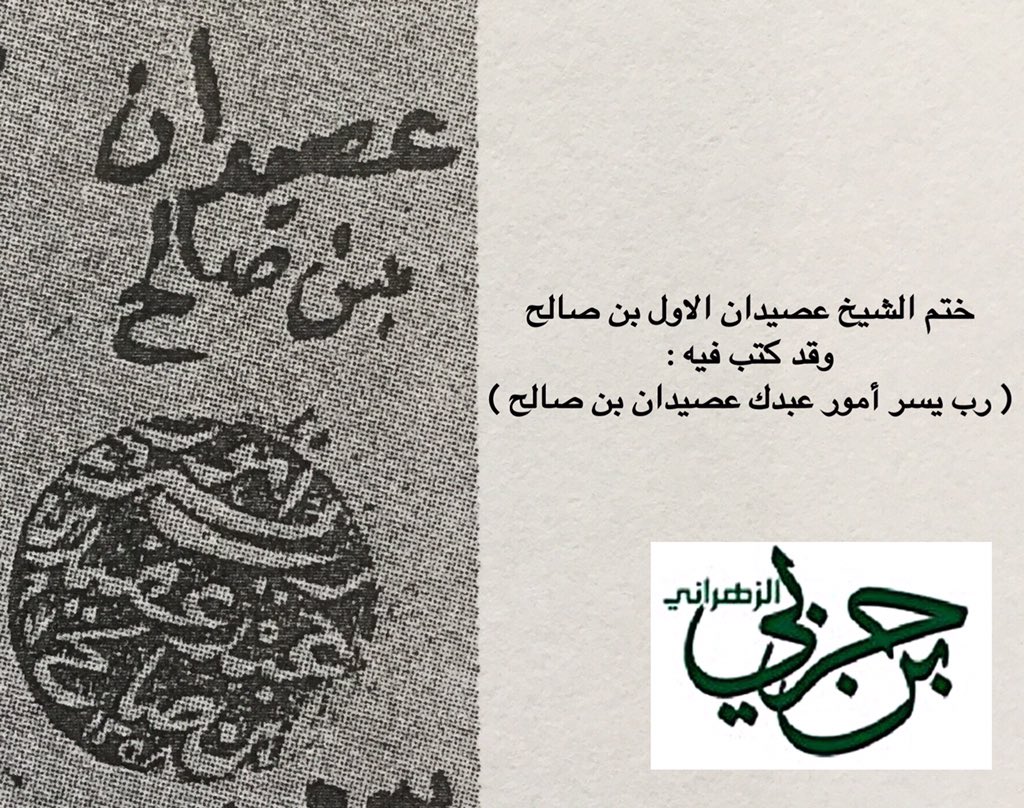 عصيدان
بن صالح
ختم الشيخ عصيدان الاول بن صالح
وقد كتب فيه :
( رب يسر أمور عبدك عصيدان بن صالح )
بن حربي
الزهراني